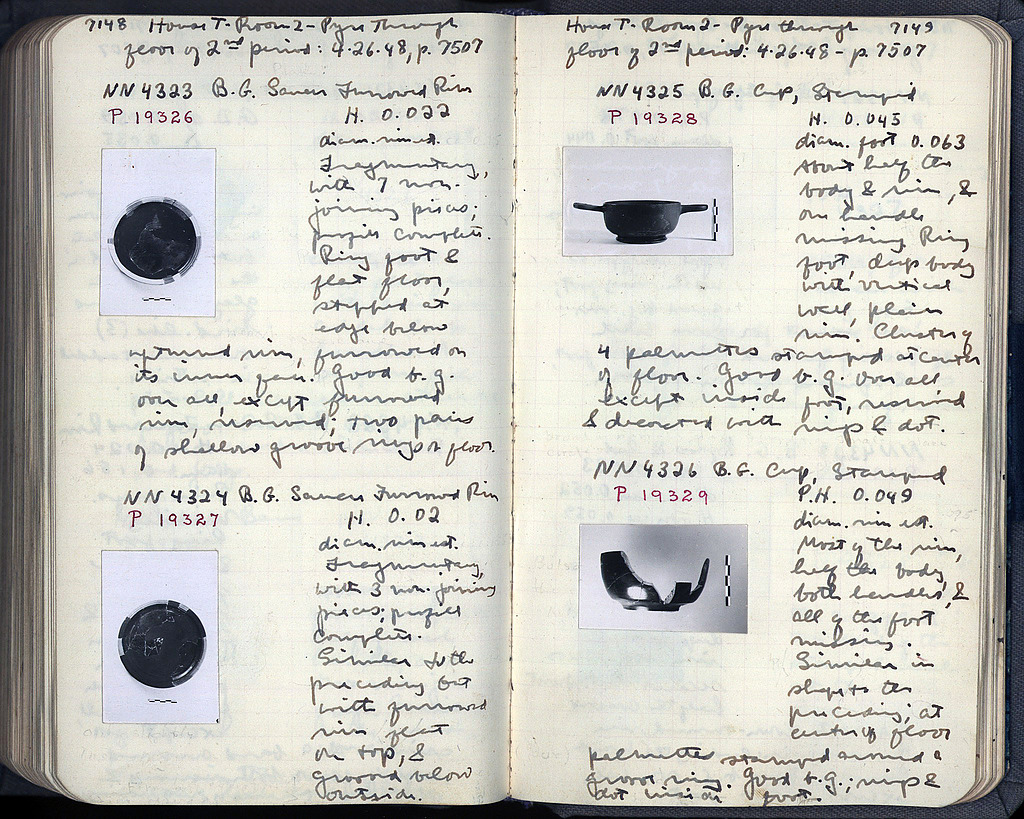 7148 House T - Room 2 - Pyre through
floor of 2nd period: 4.26.48, p. 7507
NN 4323 B.G. Saucer Furrowed Rim
P 19326
H. 0.022
diam. rim est.
Fragmentary,
with 7 non-
joining pieces;
profile complete.
Ring foot &
flat floor,
stepped at
edge below
upturned rim, furrowed on
its inner face. Good b.g.
over all, except furrowed
rim, reserved; two pairs
of shallow groove rings on floor.
NN 4324 B.G. Saucer Furrowed Rim
P 19327
H. 0.02
diam. rim est.
Fragmentary,
with 3 non-joining
pieces; profile
complete.
Similar to the
preceding but
with furrowed
rim flat
on top, &
grooved below
outside.
House T - Room 2 - Pyre through 7149
floor of 2nd period: 4.26.48 - p. 7507
NN 4325 B.G. Cup, Stamped
P 19328
H. 0.045
diam. foot 0.063
About half the
body & rim, &
one handle
missing. Ring
foot, deep body
with vertical
wall, plain
rim. Cluster of
4 palmettes stamped at center
of floor. Good b.g. over all
except inside foot, reserved
& decorated with rings & dot.
NN 4326 B.G. Cup, Stamped
P 19329
P.H. 0.049
diam. rim est.
Most of the rim,
half the body,
both handles, &
all of the foot
missing.
Similar in
shape to the
preceding; at
center of floor
palmettes stamped around a
groove ring. Good b.g.; rings &
dot inside foot.